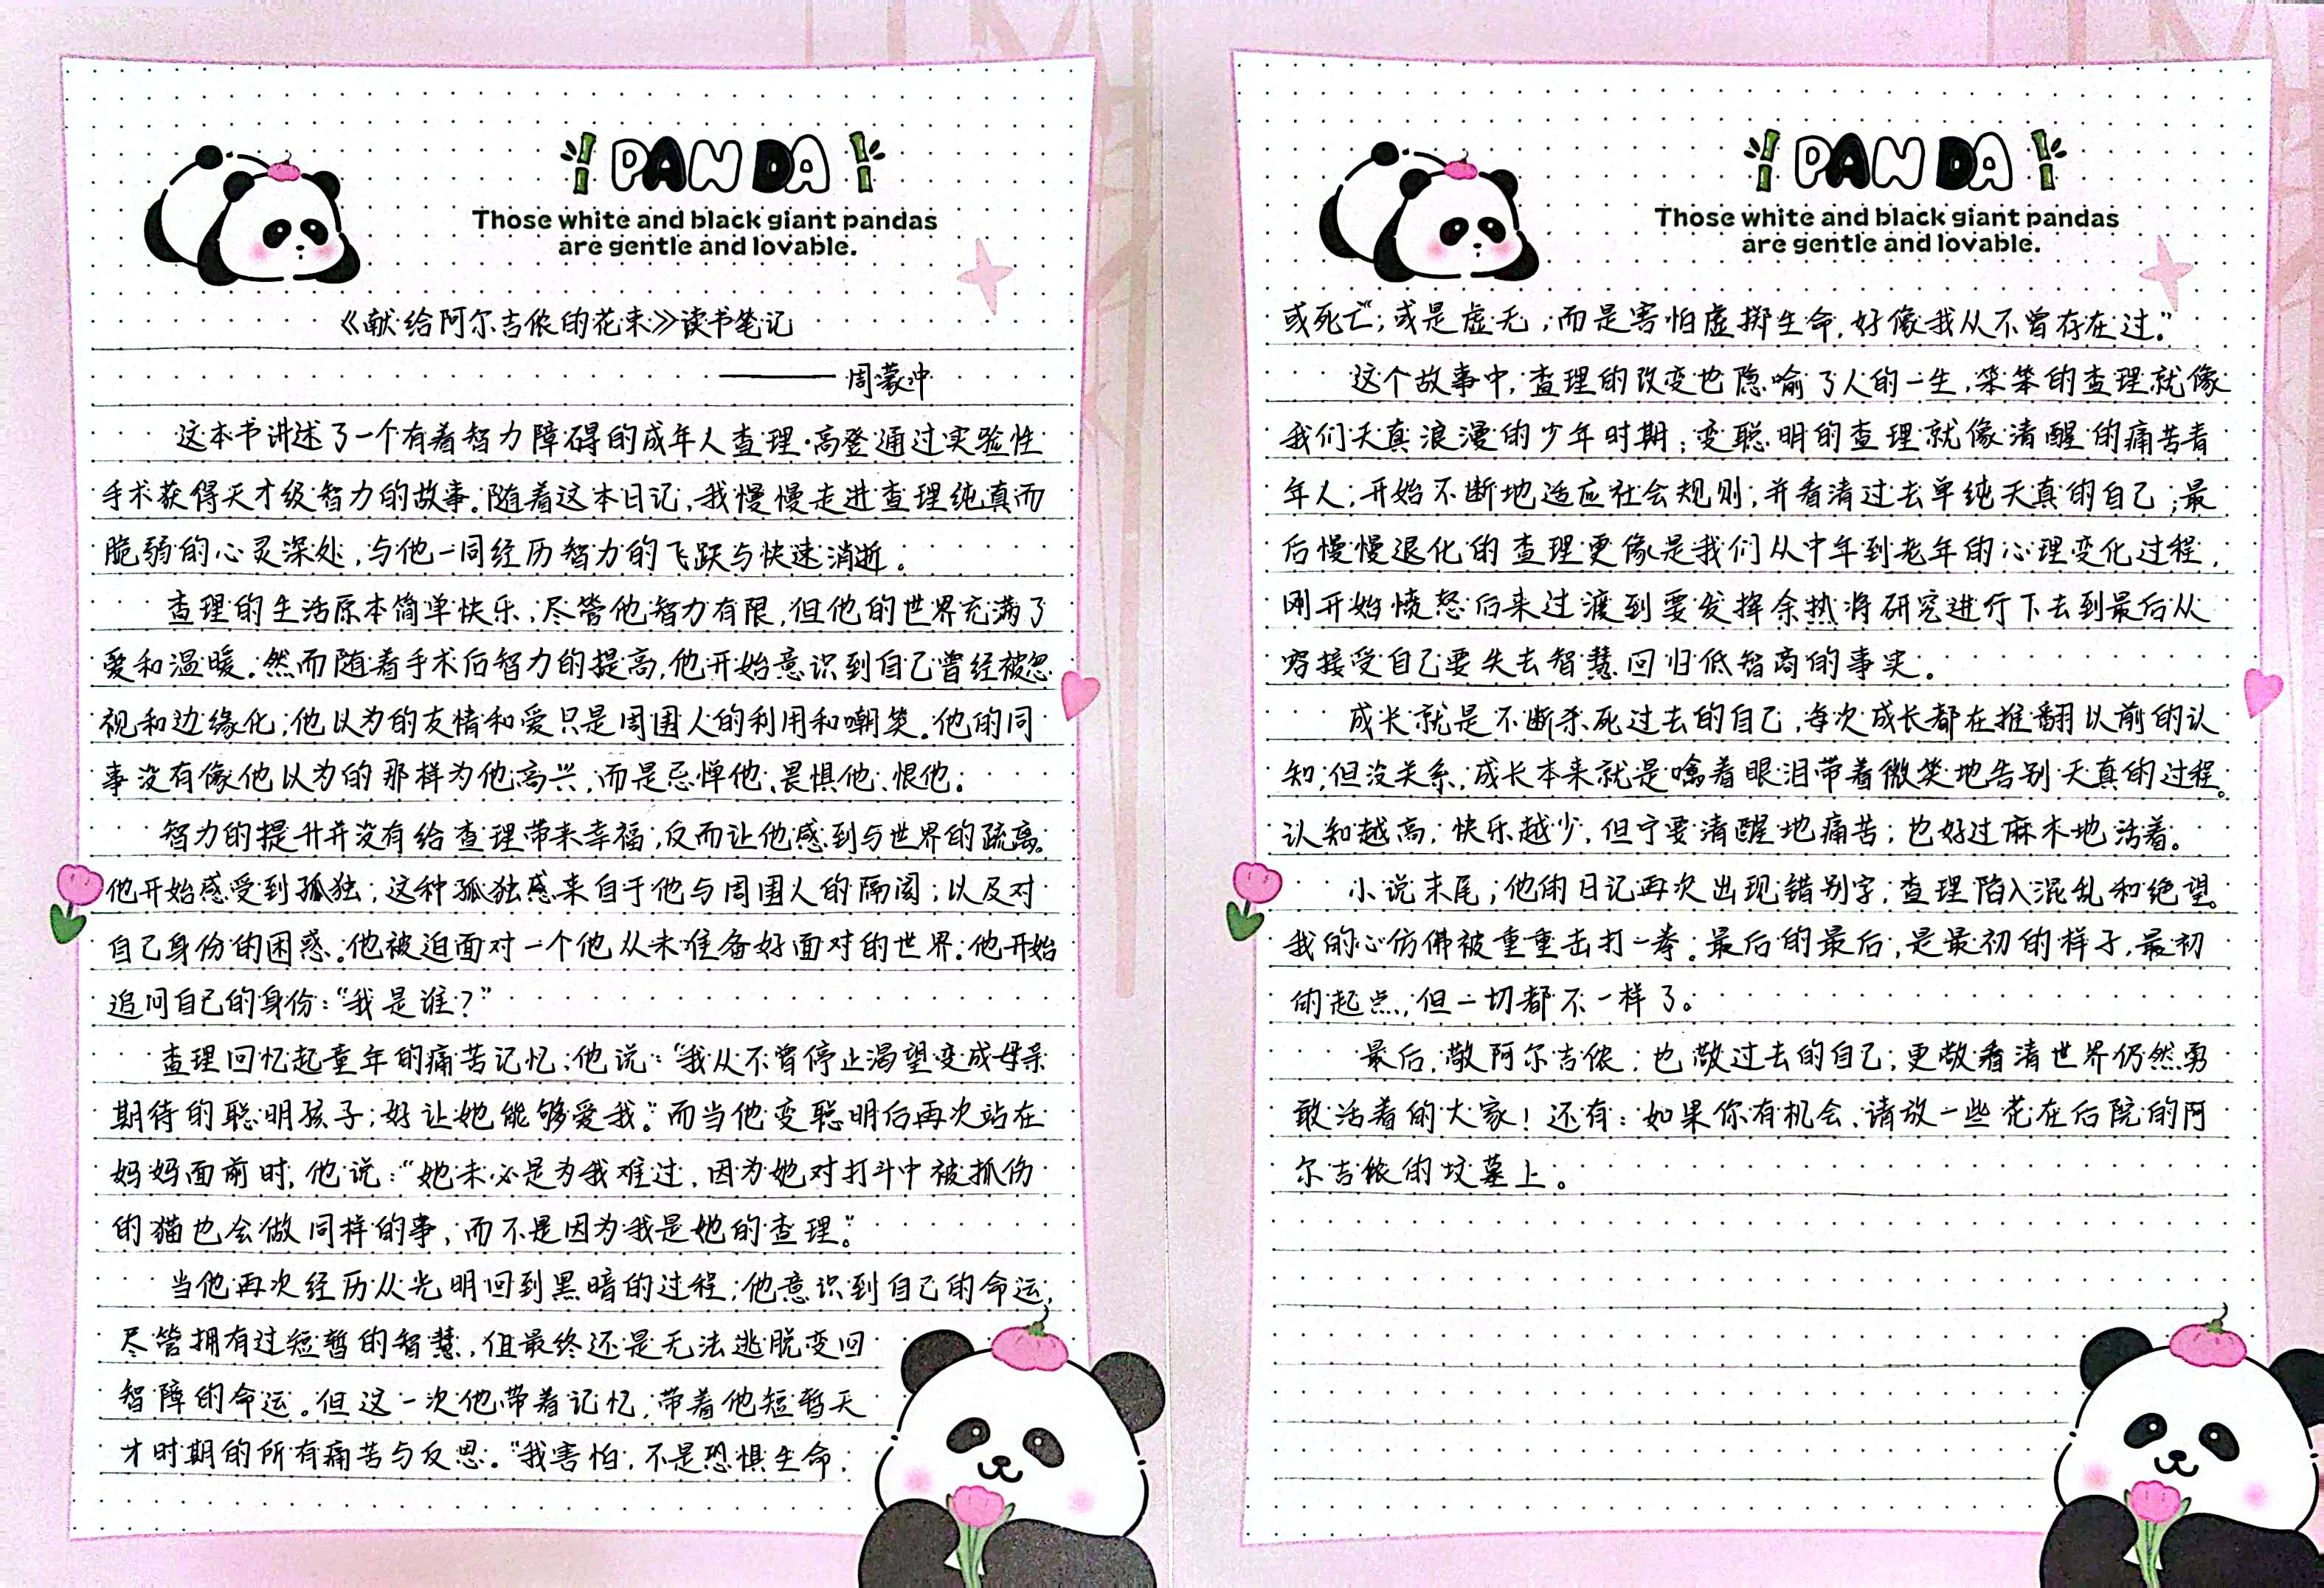 PANDA
Those white and black giant pandas
are gentle and lovable.
《献给阿尔吉侬的花束》读书笔记
——周蒙冲
这本书讲述了一个有着智力障碍的成年人查理·高登通过实验性
手术获得天才级智力的故事。随着这本日记,我慢慢走进查理纯真而
脆弱的心灵深处,与他一同经历智力的飞跃与快速消逝。
查理的生活原本简单快乐,尽管他智力有限,但他的世界充满了
爱和温暖。然而随着手术后智力的提高,他开始意识到自己曾经被忽
视和边缘化,他以为的友情和爱只是周围人的利用和嘲笑。他的同
事没有像他以为的那样为他高兴,而是忌惮他、畏惧他、恨他。
智力的提升并没有给查理带来幸福,反而让他感到与世界的疏离。
他开始感受到孤独,这种孤独感来自于他与周围人的隔阂,以及对
自己身份的困惑。他被迫面对一个他从未准备好面对的世界。他开始
追问自己的身份:“我是谁?”
查理回忆起童年的痛苦记忆,他说:“我从不曾停止渴望变成母亲
期待的聪明孩子,好让她能够爱我。”而当他变聪明后再次站在
妈妈面前时,他说:“她未必是为我难过,因为她对打斗中被抓伤
的猫也会做同样的事,而不是因为我是她的查理。”
当他再次经历从光明回到黑暗的过程,他意识到自己的命运,
尽管拥有过短暂的智慧,但最终还是无法逃脱变回
智障的命运。但这一次他带着记忆,带着他短暂天
才时期的所有痛苦与反思。“我害怕,不是恐惧生命,
PANDA
Those white and black giant pandas
are gentle and lovable.
或死亡,或是虚无,而是害怕虚掷生命,好像我从不曾存在过。”
这个故事中,查理的改变也隐喻了人的一生,笨笨的查理就像
我们天真浪漫的少年时期;变聪明的查理就像清醒的痛苦青
年人,开始不断地适应社会规则,并看清过去单纯天真的自己;最
后慢慢退化的查理更像是我们从中年到老年的心理变化过程,
刚开始愤怒后来过渡到要发挥余热将研究进行下去到最后从
容接受自己要失去智慧回归低智商的事实。
成长就是不断杀死过去的自己,每次成长都在推翻以前的认
知,但没关系,成长本来就是噙着眼泪带着微笑地告别天真的过程。
认知越高,快乐越少,但宁要清醒地痛苦,也好过麻木地活着。
小说末尾,他的日记再次出现错别字,查理陷入混乱和绝望。
我的心仿佛被重重击打一拳。最后的最后,是最初的样子,最初
的起点,但一切都不一样了。
最后,敬阿尔吉侬,也敬过去的自己,更敬看清世界仍然勇
敢活着的大家!还有:如果你有机会,请放一些花在后院的阿
尔吉侬的坟墓上。